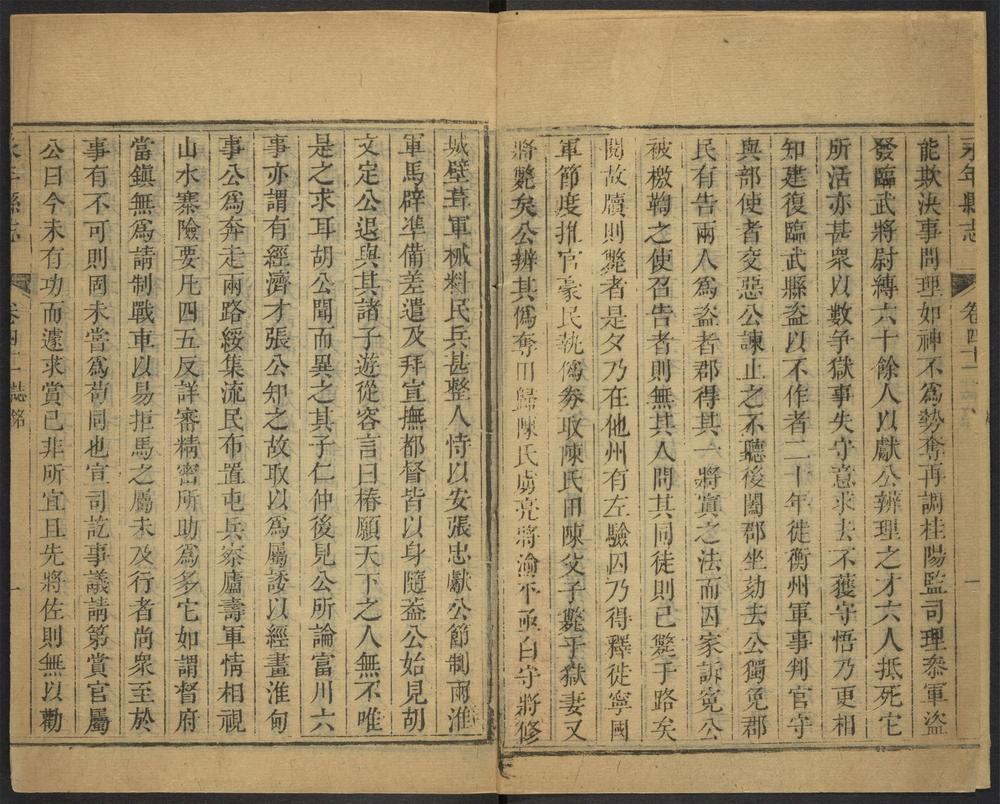 永年縣志
卷四十
一
能欺決事問理如神不為勢奪再調桂陽監司理叅軍盜
發臨武將尉縛六十餘人以獻公辨理之才六人抵死它
所活亦甚衆以數爭獄事失守意求去不獲守悟乃更相
知建復臨武縣盜以不作者二十年徙衡州軍事判官守
與部使者交惡公諫止之不聽後闔郡坐劾去公獨免郡
民有告兩人為盜者郡得其一將寘之法而囚家訴寃公
被檄鞫之使召告者則無其人問其同徒則已斃于路矣
閱故牘則斃者是夕乃在他州有左驗囚乃得釋徙寧國
軍節度推官豪民執僞券取陳氏田陳父子斃乎獄妻又
將斃矣公辨其僞奪田歸陳氏虜亮將渝平亟白守將修
城壁葺軍械料民兵甚整人恃以安張忠獻公節制兩淮
軍馬辟準備差遣及拜宣撫都督皆以身隨葢公始見胡
文定公退與其諸子遊從容言曰椿願天下之人無不唯
是之求耳胡公聞而異之其子仁仲後見公所論富川六
事亦謂有經濟才張公知之故取以為屬諉以經畫淮甸
事公為奔走兩路綏集流民布置屯兵察廬壽軍情相視
山水寨險要凡四五反詳審精密所助為多它如謂督府
當鎮無為請制戰車以易拒馬之屬未及行者尚衆至於
事有不可則固未嘗為苟同也宣司訖事議請第賞官屬
公曰今未有功而遽求賞已非所宜且先將佐則無以勸
永年縣志
卷四十
誌銘
一